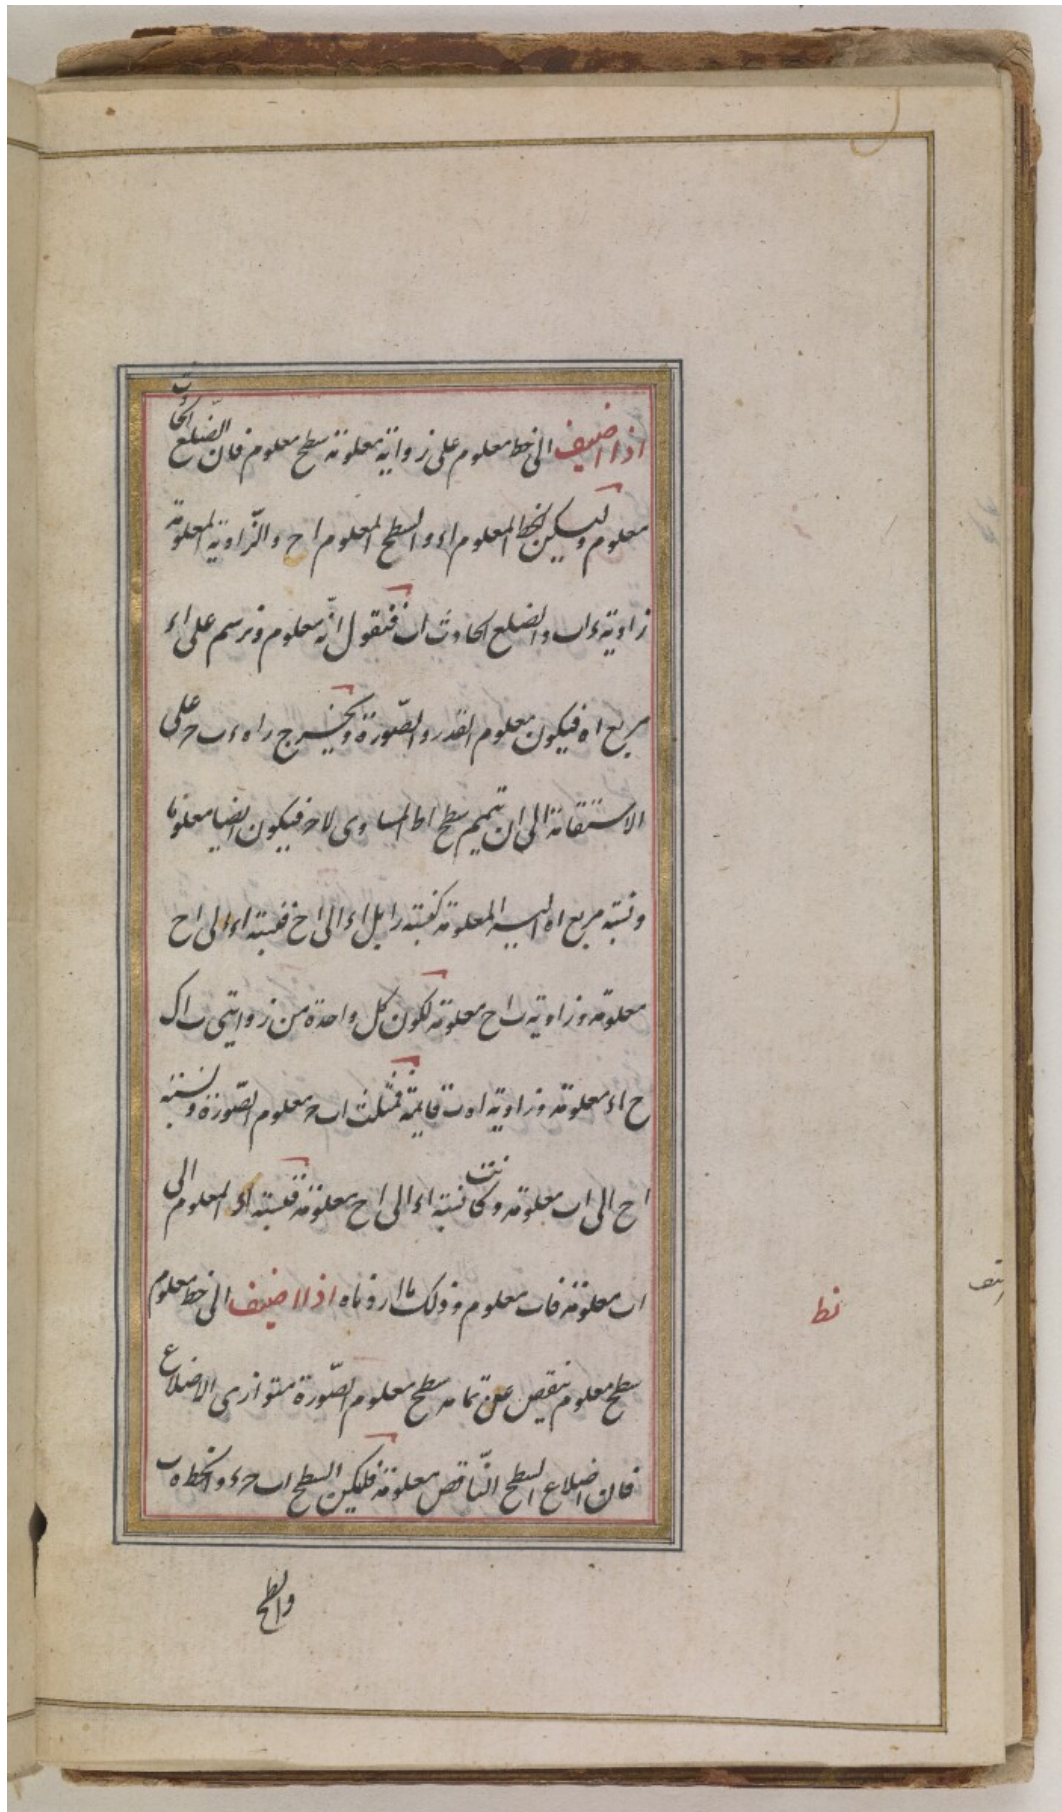 اذا اضيف الى خط معلوم على زواية معلومة سطح معلوم فان الضّلع الحادث
معلوم وليكن الخط المعلوم اء والسطح المعلوم اح والزّاوية المعلومة
زاوية ءاب والضلع الحادث اب فنقول انّه معلوم ونرسم على اء
مربع اه فيكون معلوم القدر والصّورة ويخرج راه ءب حـ على
الاستقامة الى ان تتميم سطح اط المساوى لاحـ فيكون ايضا معلوما
ونسبة مربع اه اليه المعلومة كنسبة را بل اء الى اح فنسبة اء الى اح
معلومة وزاوية ب اح معلومة لكون كل واحدة من زوايتى ب اك
ح اء معلومة وزاوية اوب قايمة فمثلث اب حـ معلوم الصّورة ونسبة
اح الى اب معلومة وكانت نسبة اء الى اح معلومة فنسبة اء المعلوم الى
اب معلومة فاب معلوم وذلك ما اردناه اذا اضيف الى خط معلوم
سطح معلوم ينقص عن تمامه سطح معلوم الصّورة متوازى الاضلاع
فان اضلاع السطح النّاقص معلومة فليكن السطح اب حـ ء والخط ه ب
والسطح
نط